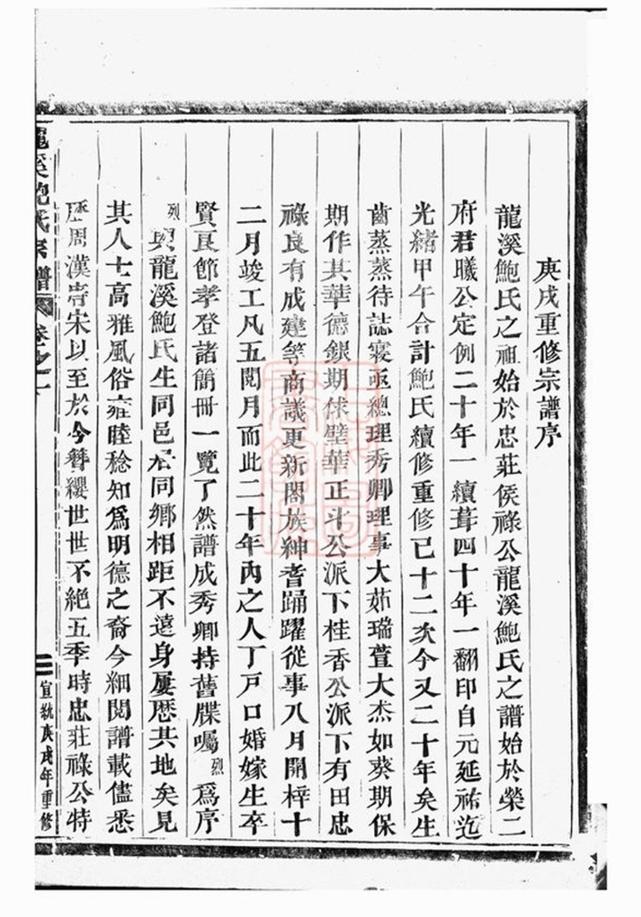 庚戌重修宗譜序
龍溪鮑氏之祖始於忠莊侯祿公龍溪鮑氏之譜始於榮二
府君曦公定例二十年一續葺四十年一翻印自元延祐迄
光緒甲午合計鮑氏續修重修已十二次今又二十年矣生
齒蒸蒸待誌寖亟總理秀卿理事大茹瑞萱大杰如葵期保
期作其華德銀期俅璧華正斗公派下桂香公派下有田忠
祿良有成建等商議更新閤族紳耆踊躍從事八月開梓十
二月竣工凡五閱月而此二十年內之人丁戶口婚嫁生卒
賢良節孝登諸簡冊一覽了然譜成秀卿持舊牒囑烈爲序
烈與龍溪鮑氏生同邑居同鄉相距不遠身屢歷其地矣見
其人士高雅風俗雍睦稔知爲明德之裔今細閱譜載儘悉
歷周漢晉宋以至於今簪纓世世不絕五季時忠莊祿公特
龍溪鮑氏宗譜 卷之一 宣統庚戌年重修